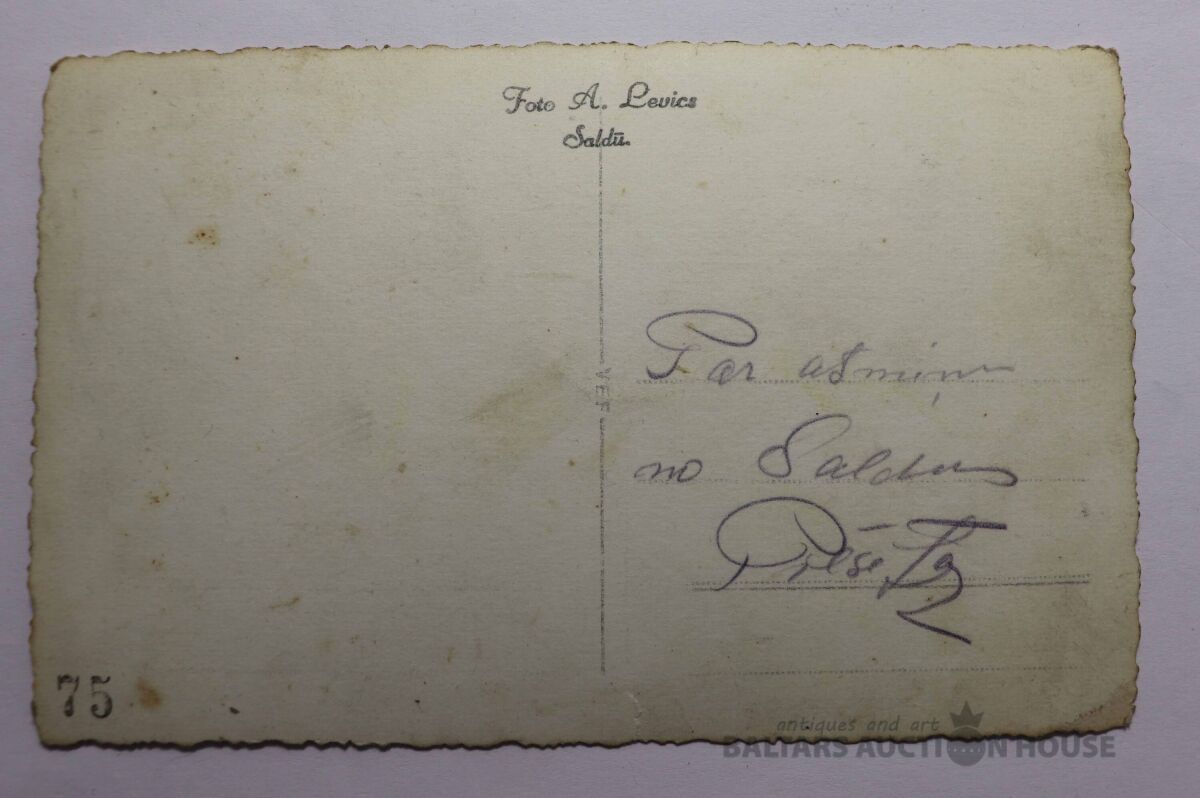 Foto A. Levics
Saldū.
VEF
Par atmiņu
no Saldus
75
antiques and art
BALTARS AUCTION HOUSE